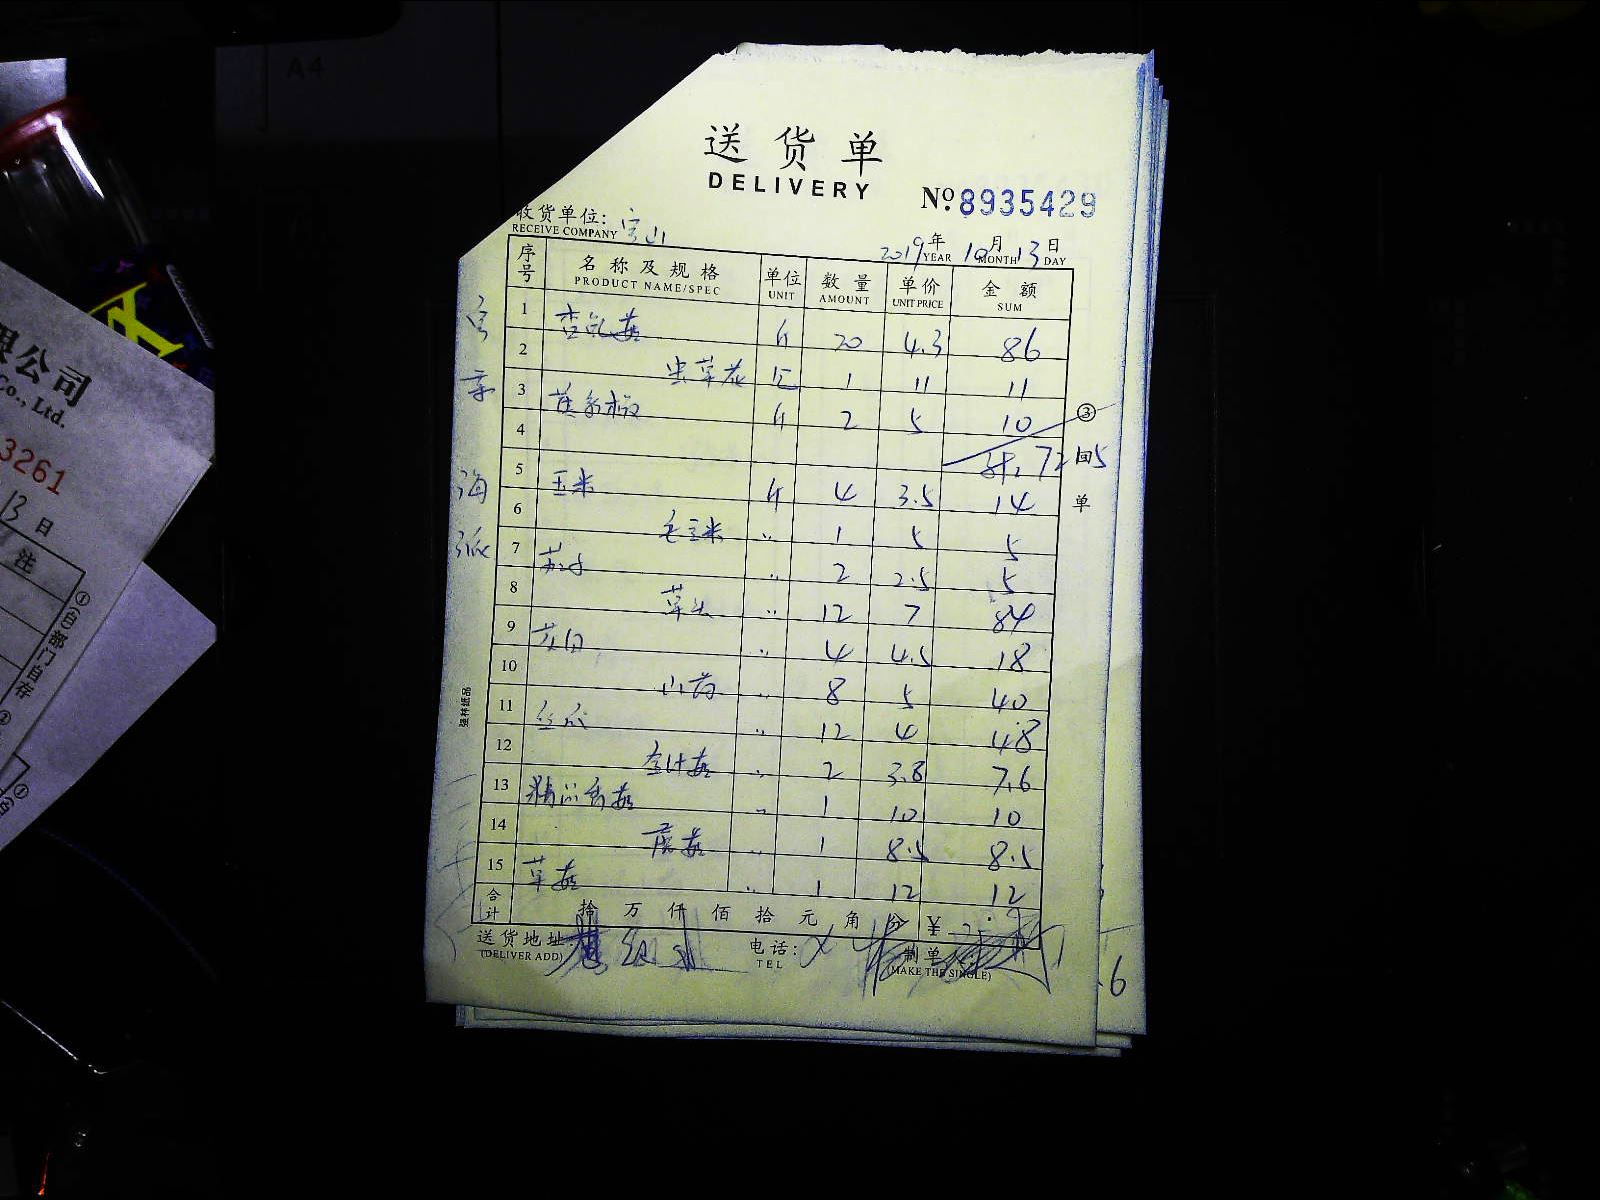 A4
送货单
DELIVERY
No. 8935429
收货单位: 宝山
RECEIVE COMPANY
2019年 10月 13日
YEAR MONTH DAY
序号 名称及规格 单位 数量 单价 金额
PRODUCT NAME/SPEC UNIT AMOUNT UNIT PRICE SUM
1 杏鲍菇 斤 20 4.3 86
2 虫草花 1 11 11
3 斤 2 5 10
4 72
5 玉米 斤 4 3.5 14
6 毛豆米 〃 1 5 5
7 〃 2 2.5 5
8 草头 〃 12 7 84
9 〃 4 4.5 18
10 山药 〃 8 5 40
11 丝瓜 〃 12 4 48
12 金针菇 〃 2 3.8 7.6
13 精品香菇 〃 1 10 10
14 〃 1 8.5 8.5
15 草菇 〃 1 12 12
合计 拾 万 仟 佰 拾 元 角 份 ¥
送货地址: 电话: 制单
(DELIVER ADD) TEL (MAKE THE SINGLE)
③
回
单
强林纸品
.6
限公司
Co., Ltd.
3261
13日
注
①(白)部门自存
②
①(白)